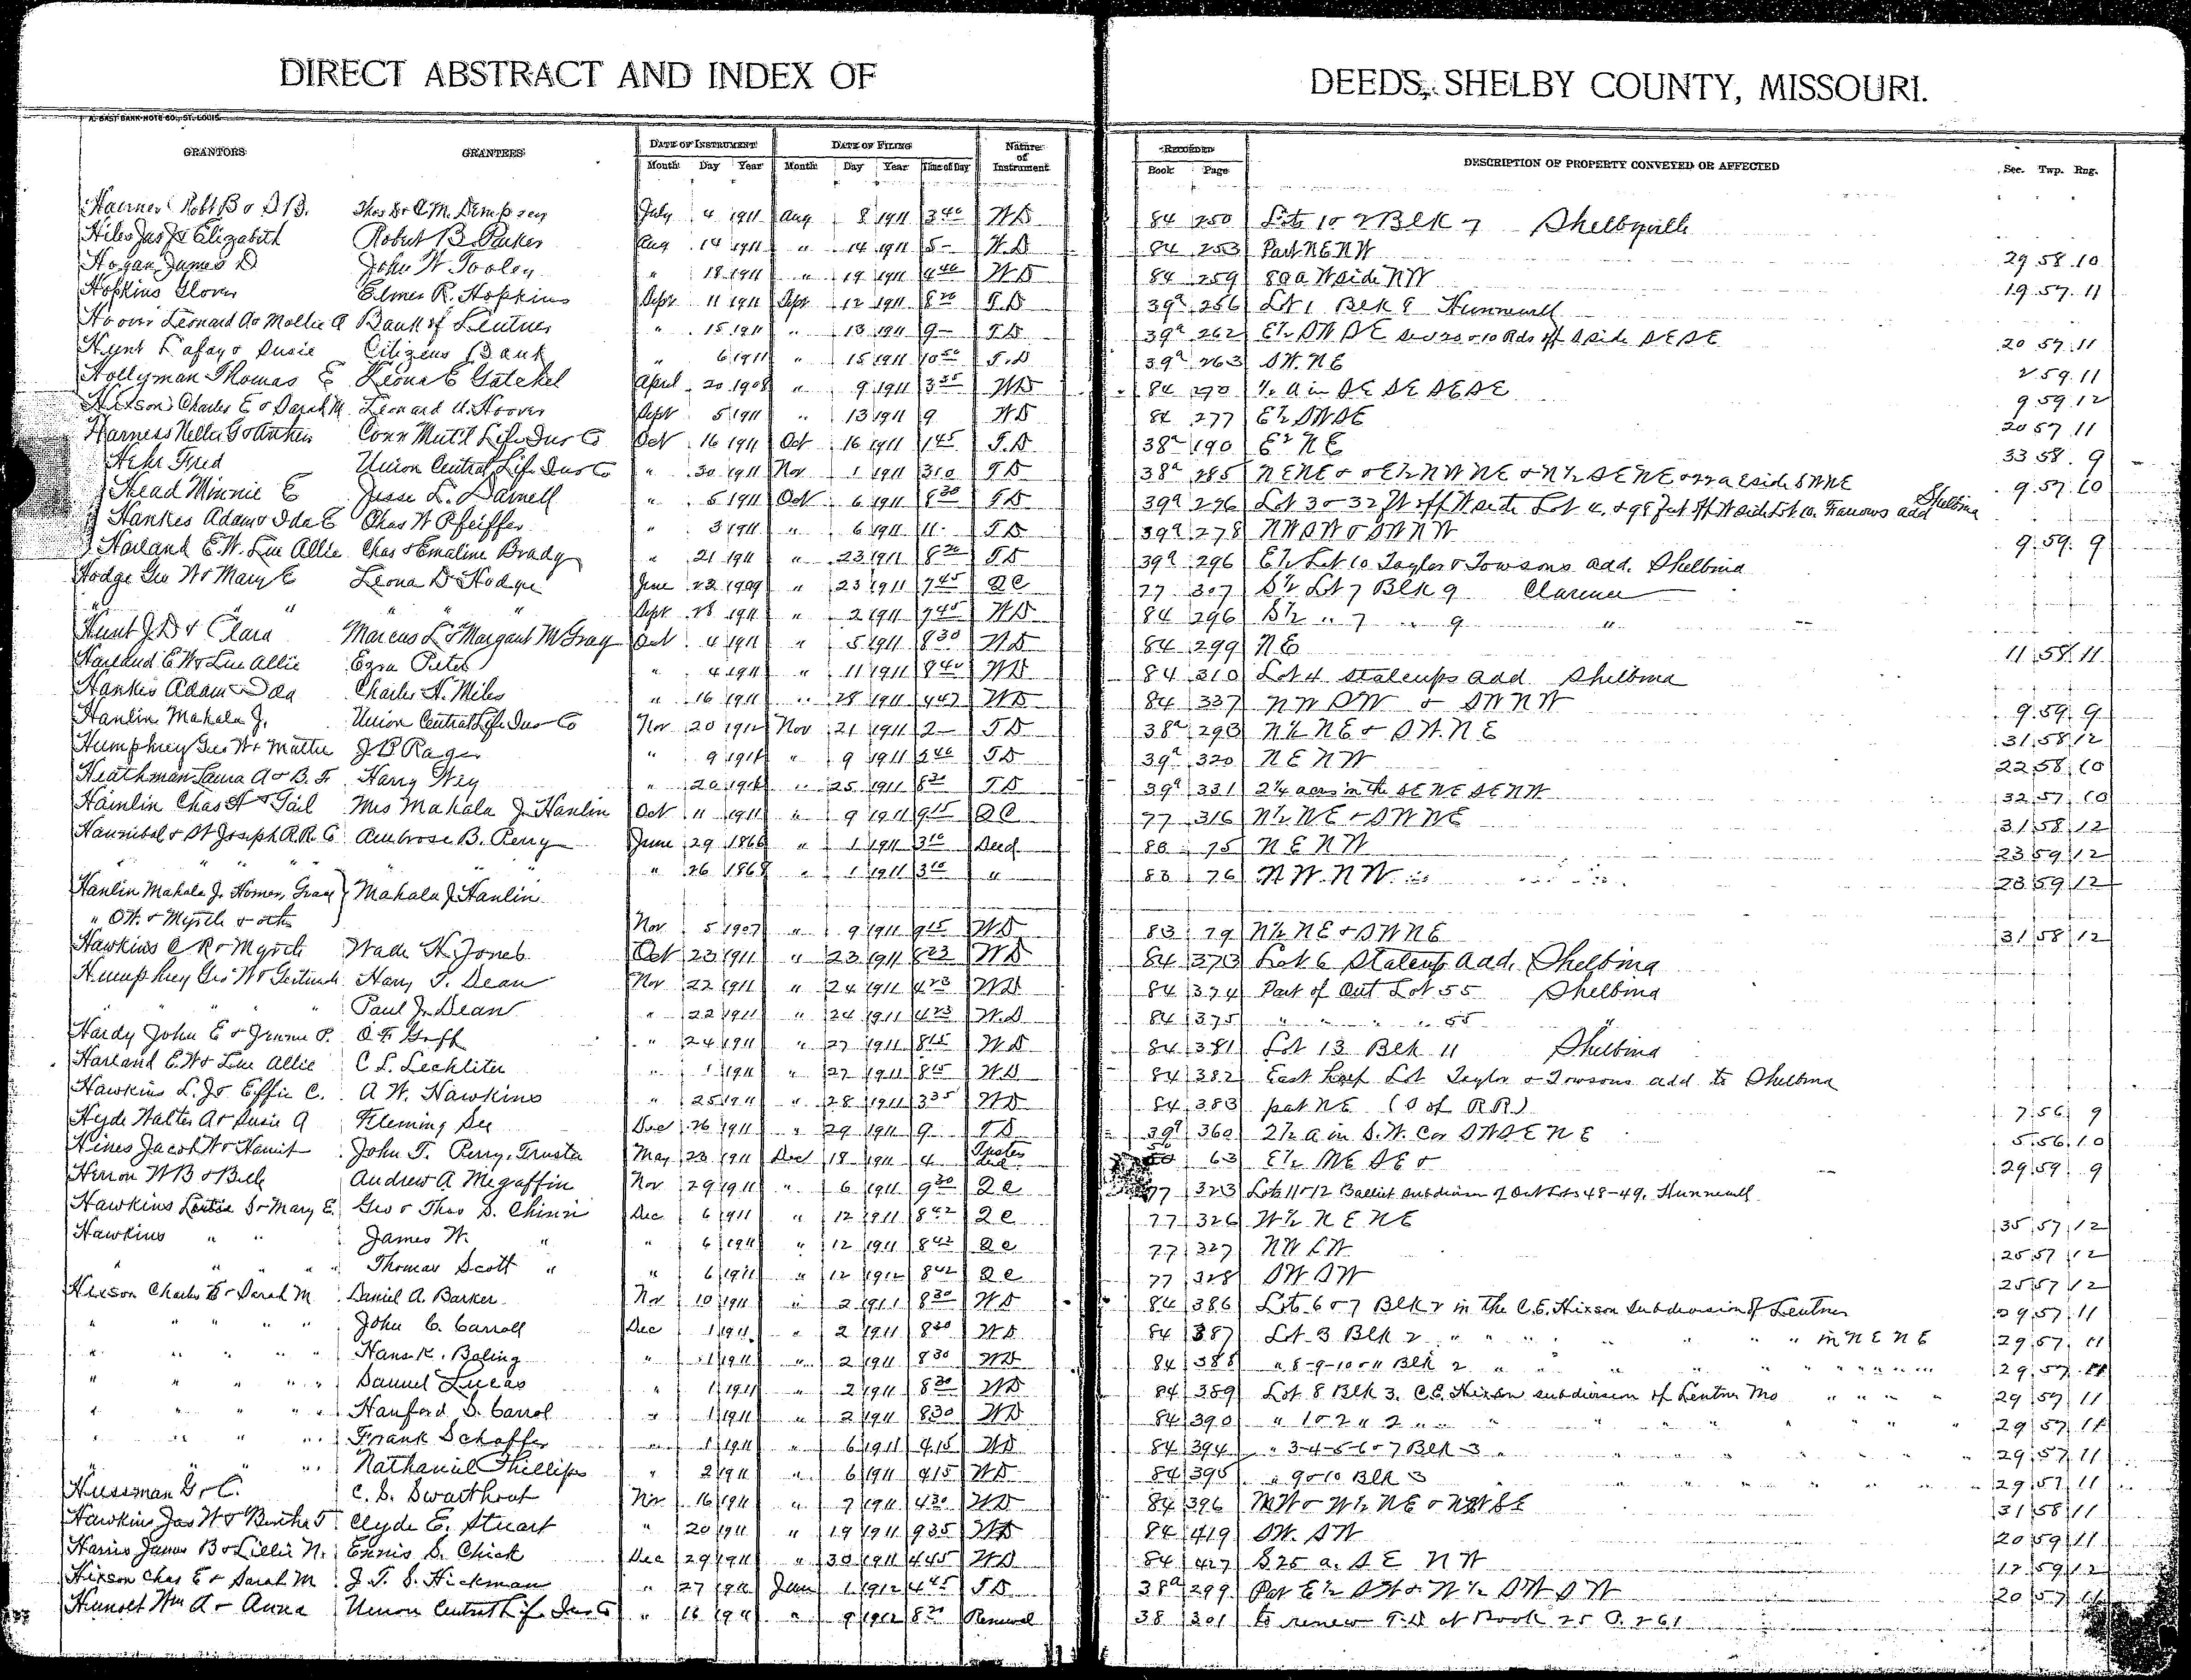 DIRECT ABSTRACT AND INDEX OF DEEDS, SHELBY COUNTY, MISSOURI.
A. GAST BANK NOTE CO., ST. LOUIS.
GRANTORS GRANTEES DATE OF INSTRUMENT DATE OF FILING Nature of Instrument RECORDED DESCRIPTION OF PROPERTY CONVEYED OR AFFECTED Sec. Twp. Rng.
Month Day Year Month Day Year Time of Day Book Page
Robt B & July 4 1911 Aug 8 1911 3 40 WD 84 250 Lots 1 & 2 Blk 7 Shelbyville
Hiles Jas & Elizabeth Robert B. Parker Aug 14 1911 " 14 1911 5 - WD 84 253 Part NE NW 29 58 10
Hogan James D John W. Tooley " 18 1911 " 19 1911 4 40 WD 84 259 80 a W side NW 19 57 11
Hopkins Glover Elmer R. Hopkins Sept 11 1911 Sept 12 1911 8 20 T.D 39a 256 Lot 1 Blk 9 Hunnewell
Hoover Leonard A & Mollie A Bank of Lentner " 15 1911 " 13 1911 9 - T D 39a 262 E½ SW SE & 10 Rds off S side SE SE 20 57 11
Hunt Lafay & Susie Citizens Bank " 6 1911 " 15 1911 10 50 T.D 39a 263 SW. NE 2 59 11
Hollyman Thomas E Leona E Gatchel April 20 1908 " 9 1911 3 35 WD 84 270 ½ a in SE SE SE SE 9 59 12
Hixson Charles E & Sarah M. Leonard A. Hoover Sept 5 1911 " 13 1911 9 WD 84 277 E½ SW SE 20 57 11
Harness Nellie G & Conn Mut'l Life Ins Co Oct 16 1911 Oct 16 1911 1 45 T.D 38a 190 E½ NE 33 58 9
Fred Union Central Life Ins Co " 30 1911 Nov 1 1911 3 10 T D 38a 285 NE NE & E½ NW NE & N½ SE NE & E side SW NE 9 57 10
Head Minnie E Jesse L. Darnell " 5 1911 Oct 6 1911 8 30 T D 39a 276 Lot 3 & 32 ft off W side Lot 4, & 98 feet off W side Lot 10 add Shelbina
Hankes Adam & Ida E Chas W Pfeiffer " 3 1911 " 6 1911 11 - T D 39a 278 NW SW & SW NW 9 59 9
Harland E.W. & Lue Allie Chas & Emaline Brady " 21 1911 " 23 1911 8 20 T D 39a 296 E½ Lot 10 Taylor & Towsons add. Shelbina
Hodge Geo W & Mary E Leona D Hodge June 22 1909 " 23 1911 7 45 QC 77 307 S½ Lot 7 Blk 9 Clarence
" " " " " " Sept 28 1911 " 2 1911 7 45 WD 84 296 S½ " 7 " 9 "
Hunt J.D & Clara Marcus L & Margaret M Gray Oct 4 1911 " 5 1911 8 30 WD 84 299 NE 11 58 11
Harland E.W & Lue Allie Ezra Peter " 4 1911 " 11 1911 8 40 WD 84 310 Lot 4 Stalcups add Shelbina
Hankes Adam & Ida Charles H. Miles " 16 1911 " 28 1911 4 47 WD 84 337 NW SW & SW NW 9 59 9
Hanlin Mahala J. Union Central Life Ins Co Nov 20 1912 Nov 21 1911 2 - T D 38a 293 N½ NE & SW. NE 31 58 12
Humphrey Geo W & Mattie J B Rager " 9 1911 " 9 1911 5 40 T D 39a 320 NE NW 22 58 10
Heathman Laura A & B. F. Harry Wey " 20 1911 " 25 1911 8 30 T D 39a 331 2¼ acres in the SE NE SE NW 32 57 10
Hamlin Chas A & Gail Mrs Mahala J. Hanlin Oct 11 1911 " 9 1911 9 15 QC 77 316 N½ NE & SW NE 31 58 12
Hannibal & St Joseph R.R. Co Ambrose B. Perry June 29 1866 " 1 1911 3 10 Deed 83 75 NE NW 23 59 12
" " " " " " 26 1868 " 1 1911 3 10 " 83 76 NW. NW 23 59 12
Hanlin Mahala J. Homer, Gray } Mahala J. Hanlin
" O.W. & Myrtle & others Nov 5 1907 " 9 1911 9 15 WD 83 79 N½ NE & SW NE 31 58 12
Hawkins C R & Myrtle Wade H. Jones Oct 23 1911 " 23 1911 8 23 WD 84 373 Lot 6 Stalcup Add. Shelbina
Humphrey Geo W & Gertrude Harry T. Dean Nov 22 1911 " 24 1911 4 23 WD 84 374 Part of Out Lot 55 Shelbina
" " " Paul J. Dean " 22 1911 " 24 1911 4 23 W.D 84 375 " " " " 55 "
Hardy John E & Jennie P. O F Goff " 24 1911 " 27 1911 8 15 WD 84 381 Lot 13 Blk 11 Shelbina
Harland E.W & Lue Allie C L. Lechliter " 1 1911 " 27 1911 8 15 WD 84 382 East half Lot Taylor & Towsons add to Shelbina
Hawkins L. J & Effie C. A W. Hawkins " 25 1911 " 28 1911 3 35 WD 84 383 part NE (S of RR) 7 56 9
Hyde Walter A & Susie A Fleming Dec 26 1911 " 29 1911 9 T D 39a 360 2½ a in S.W. Cor SW SE NE 5 56 10
Hines Jacob W & John T. Perry, Trustee May 23 1911 Dec 18 1911 4 Trustee deed 63 E½ NE SE & 29 59 9
Herron W B & Belle Andrew A Megaffin Nov 29 1911 " 6 1911 9 30 QC 77 323 Lots 11 & 12 subdivision of Out Lots 48-49. Hunnewell
Hawkins S & Mary E. Geo & Thos S. Chinn Dec 6 1911 " 12 1911 8 42 QC 77 326 W½ NE NE 35 57 12
Hawkins " " James W. " " 6 1911 " 12 1911 8 42 QC 77 327 NW SW 25 57 12
" " " " Thomas Scott " " 6 1911 " 12 1912 8 42 QC 77 328 SW SW 25 57 12
Hixson Charles E & Sarah M Daniel A. Barker Nov 10 1911 " 2 1911 8 30 WD 84 386 Lots 6 & 7 Blk 2 in the C.E. Hixson Subdivision of Lentner 29 57 11
" " " " " John C. Carroll Dec 1 1911 " 2 1911 8 30 WD 84 387 Lot 3 Blk 2 " " " " " in NE NE 29 57 11
" " " " " Hans K. Boling " 1 1911 " 2 1911 8 30 WD 84 388 " 8-9-10 & 11 Blk 2 " " " " " 29 57 11
" " " " " Samuel Lucas " 1 1911 " 2 1911 8 30 WD 84 389 Lot 8 Blk 3. C.E. Hixson subdivision of Lentner Mo " " " " 29 57 11
" " " " " Hanford S. Carrol " 1 1911 " 2 1911 8 30 WD 84 390 " 1 & 2 " 2 " " " " " " 29 57 11
" " " " " Frank Schoffer " 1 1911 " 6 1911 9 15 WD 84 394 " 3-4-5-6 & 7 Blk 3 " " " " " 29 57 11
" " " Nathaniel Phillips " 2 1911 " 6 1911 9 15 WD 84 395 " 9 & 10 Blk 3 " " " " " 29 57 11
Hussman G. & C. C. S. Swarthout Nov 16 1911 " 7 1911 4 30 WD 84 396 NW & W½ NE & NW SE 31 58 11
Hawkins Jas W & Bertha T Clyde E. Stuart " 20 1911 " 19 1911 9 35 WD 84 419 SW. SW 20 59 11
Harris James B & Lillie N. Ennis S. Chick Dec 29 1911 " 30 1911 4 45 WD 84 427 S 25 a. SE NW 12 59 12
Hixson Chas E & Sarah M J. T. S. Hickman " 27 1911 Jan 1 1912 4 45 T D 38a 299 Part E½ SW & W½ SW SW 20 57 11
Wm A & Anna Union Central Life Ins Co " 16 1911 " 9 1912 8 20 Renewal 38 301 to renew T.D at Book 25 P. 261